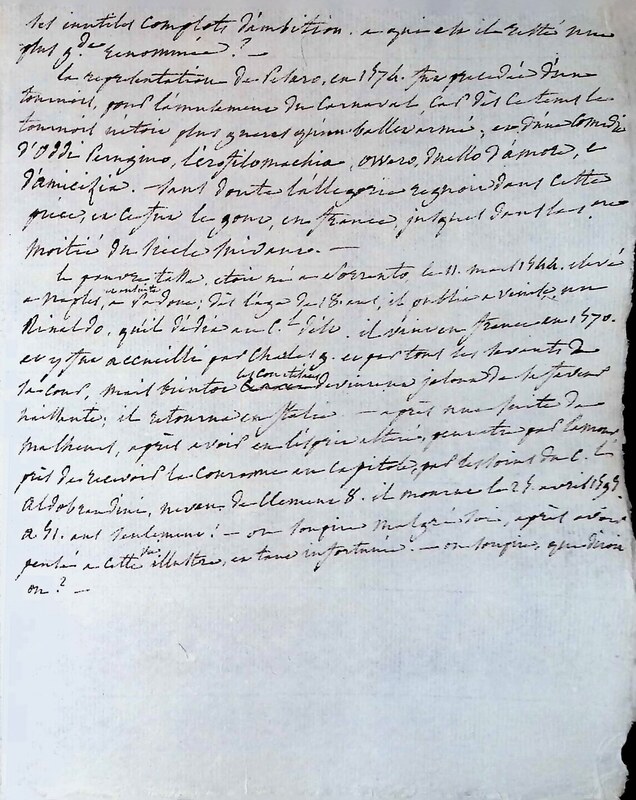 les inutiles complots d'ambition. a qui est il resté une
plus g.de renommée? —
la representation de Pesaro, en 1574. fut precedée d'un
tournois, pour l'amusement du Carnaval. Car dès ce tems le
tournois n'étoit plus gueres qu'un ballet armé, et d'une Comedie
d'Oddi Perugino, l'erofilomachia, ovvero, duello d'amore, e
d'amicizia. — sans doute l'allegorie regnoit dans cette
piece, et ce fut le gout, en france jusques dans la 1.ere
moitié du siecle suivant. —
le pauvre tasse, étoit né a Sorrento le 11. mars 1544. elevé
a Naples, ensuite a Padoue; dès l'age de 18 ans, il publie a venise, un
Rinaldo, qu'il dédie au C.al d'este. il vint en france en 1570.
et y fut accueilli par Charles 9. et par tous les savants de
sa cour, mais bientot les courtisans devinrent jaloux de sa faveur
naissante; il retourna en Italie — après une suite de
malheurs, après avoir eu l'esprit altéré, peut etre par l'amour
près de recevoir la Couronne au Capitole, par les soins du C.al
Aldobrandini, neveu de Clement 8. il mourut le 25. avril 1595.
a 51. ans seulement! — on soupire malgré soi, après avoir
pensé a cette vie illustre, et tant infortunée. — on soupire, que diroit
on? —